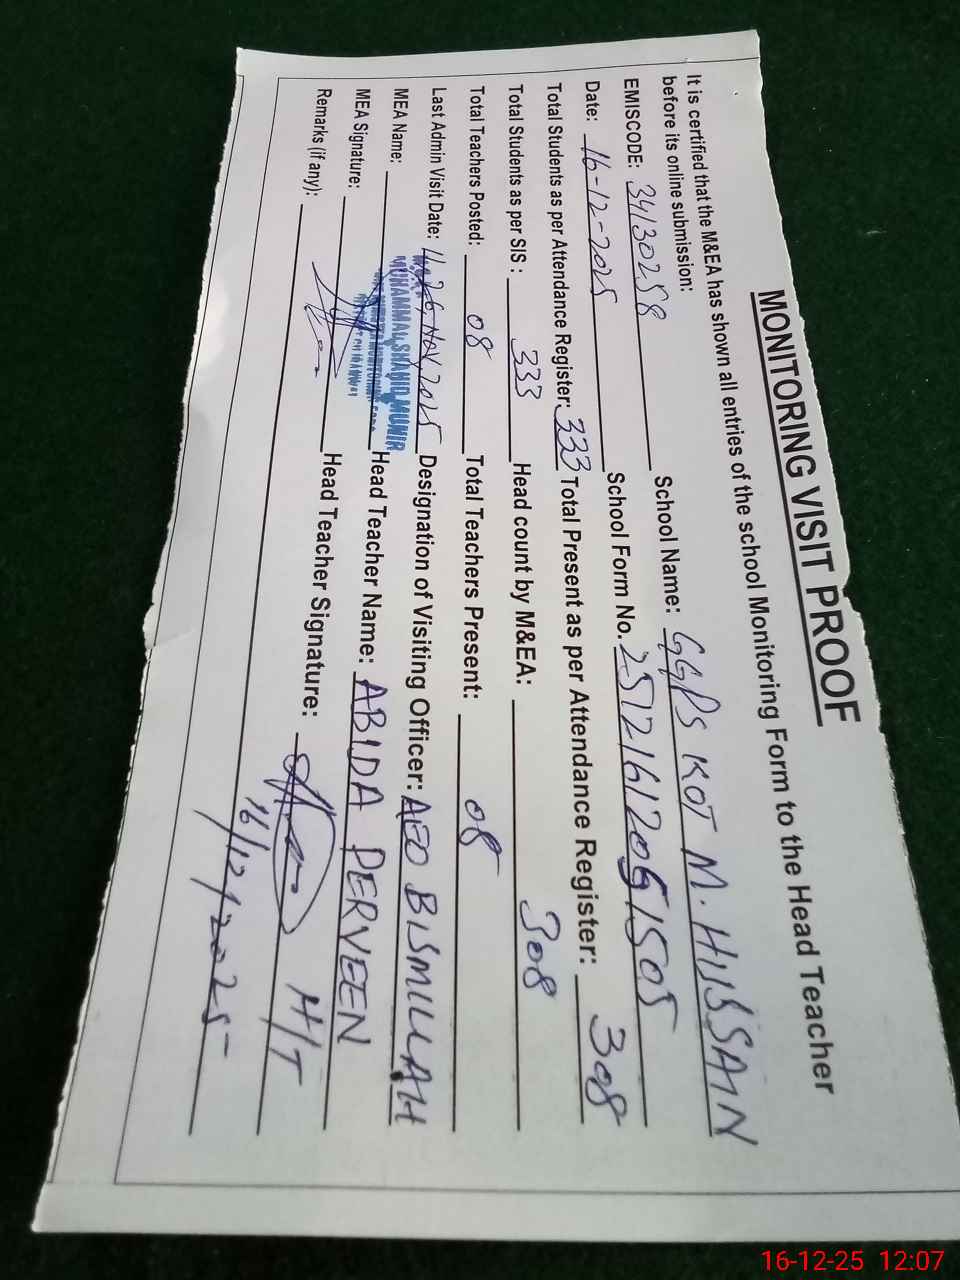 MONITORING VISIT PROOF
It is certified that the M&EA has shown all entries of the school Monitoring Form to the Head Teacher
before its online submission:
EMISCODE: 34130258 School Name: GGPS KOT M. HUSSAIN
Date: 16-12-2025 School Form No. 25121612051505
Total Students as per Attendance Register: 333 Total Present as per Attendance Register: 308
Total Students as per SIS : 333 Head count by M&EA: 308
Total Teachers Posted: 08 Total Teachers Present: 08
Last Admin Visit Date: 26, NOV, 2025 Designation of Visiting Officer: AEO BISMILLAH
MEA Name: MUHAMMAD SHAHID MUNIR Head Teacher Name: ABIDA PERVEEN
MEA Signature: Head Teacher Signature: H/T
Remarks (if any): 16/12/2025
16-12-25 12:07